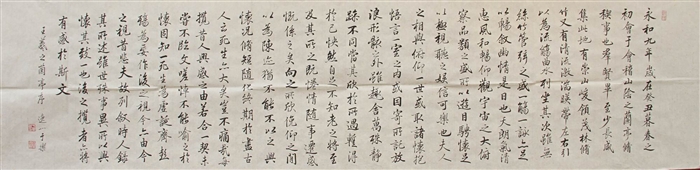 永和九年歲在癸丑暮春之
初會于會稽山陰之蘭亭脩
稧事也群賢畢至少長咸
集此地有崇山峻領茂林脩
竹又有清流激湍暎帶左右引
以為流觴曲水列坐其次雖無
絲竹管弦之盛一觴一詠亦足
以暢敘幽情是日也天朗氣清
惠風和暢仰觀宇宙之大俯
察品類之盛所以遊目騁懷足
以極視聽之娛信可樂也夫人
之相與俯仰一世或取諸懷抱
悟言一室之內或因寄所託放
浪形骸之外雖趣舍萬殊靜
躁不同當其欣於所遇暫得
於己快然自足不知老之將至
及其所之既惓情隨事遷感
慨係之矣向之所欣俛仰之間
以為陳迹猶不能不以之興
懷況脩短隨化終期於盡古
人云死生亦大矣豈不痛哉每
攬昔人興感之由若合一契未
嘗不臨文嗟悼不能喻之於
懷固知一死生為虛誕齊彭
殤為妄作後之視今亦由今
之視昔悲夫故列敘時人錄
其所述雖世殊事異所以興
懷其致一也後之攬者亦將
有感於斯文
王羲之蘭亭序